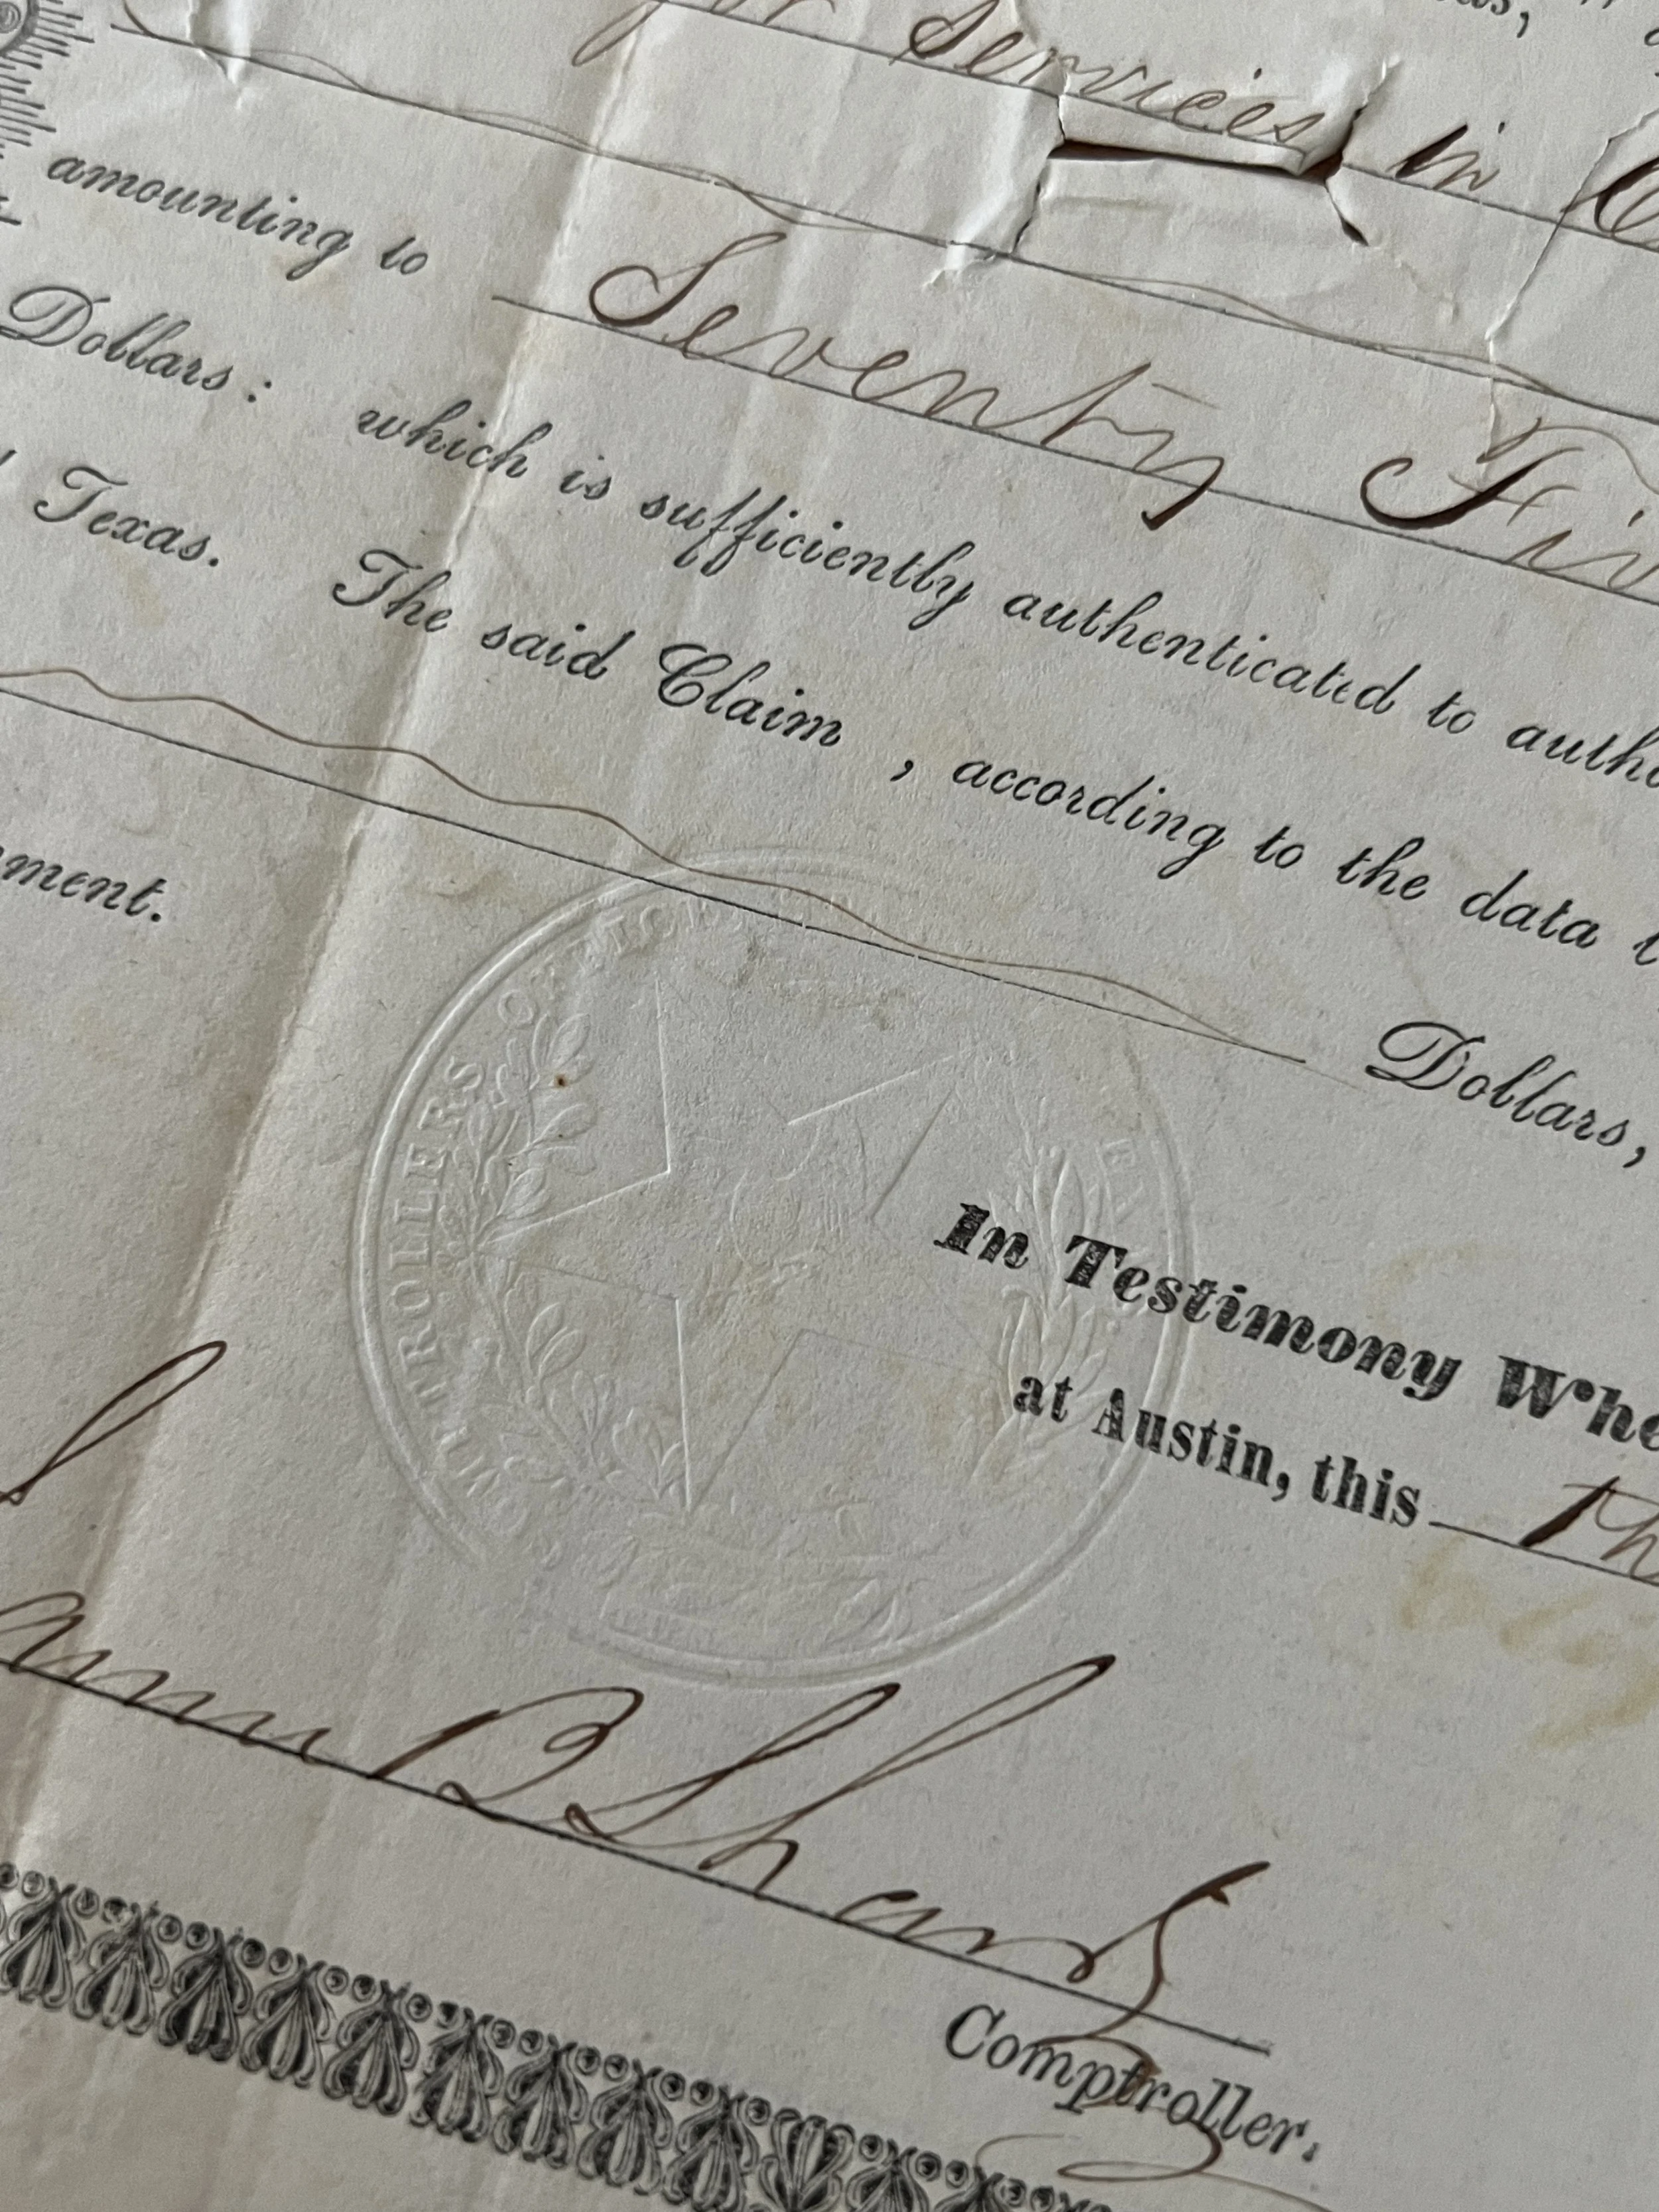 for Services in
amounting to Seventy Fiv
Dollars: which is sufficiently authenticated to autho
Texas. The said Claim , according to the data
Dollars,
ment.
COMPTROLLERS OFFICE
In Testimony Whe
at Austin, this th
Shank
Comptroller.